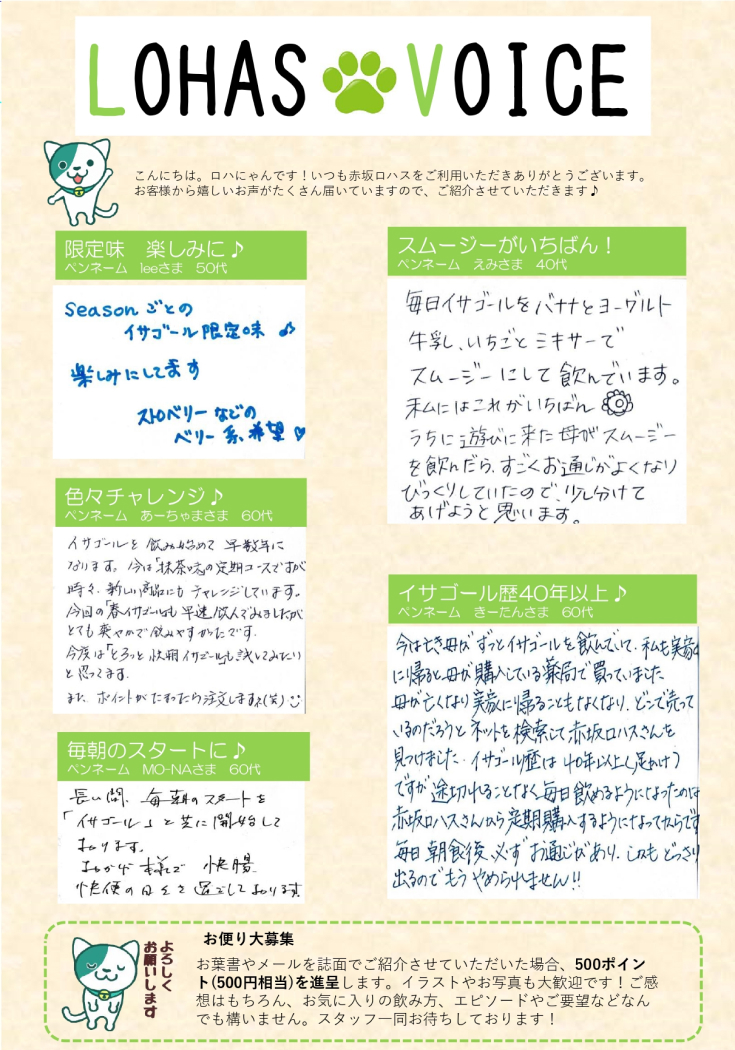 LOHAS VOICE
こんにちは。ロハにゃんです！いつも赤坂ロハスをご利用いただきありがとうございます。
お客様から嬉しいお声がたくさん届いていますので、ご紹介させていただきます♪
限定味　楽しみに♪
ペンネーム　leeさま　50代
Seasonごとの
イサゴール限定味 ♪
楽しみにしてます
ストロベリーなどの
ベリー系、希望♡
色々チャレンジ♪
ペンネーム　あーちゃまさま　60代
イサゴールを飲み始めて早数年に
なります。今は「抹茶味」の定期コースですが
時々、新しい商品にもチャレンジしています。
今回の「春イサゴール」も早速飲んでみましたが
とても爽やかで飲みやすかったです。
今度は「とろっと快朝イサゴール」も試してみたい
と思ってます。
また、ポイントがたまったら注文しますネ(笑)
毎朝のスタートに♪
ペンネーム　MO-NAさま　60代
長い間、毎朝のスタートを
「イサゴール」と共に開始して
おります。
おかげ様で快腸
快便の日々を過ごしております
スムージーがいちばん！
ペンネーム　えみさま　40代
毎日イサゴールをバナナとヨーグルト
牛乳、いちごとミキサーで
スムージーにして飲んでいます。
私にはこれがいちばん
うちに遊びに来た母がスムージー
を飲んだら、すごくお通じがよくなり
びっくりしていたので、少し分けて
あげようと思います。
イサゴール歴40年以上♪
ペンネーム　きーたんさま　60代
今は亡き母がずっとイサゴールを飲んでいて、私も実家
に帰ると母が購入している薬局で買っていました
母が亡くなり実家に帰ることもなくなり、どこで売って
いるのだろうとネットを検索して赤坂ロハスさんを
見つけました。イサゴール歴は40年以上(足かけ)
ですが途切れることなく毎日飲めるようになったのは
赤坂ロハスさんから定期購入するようになってからです
毎日朝食後、必ずお通じがあり、しかもどっさり
出るのでもうやめられません!!
よろしく
お願いします
お便り大募集
お葉書やメールを誌面でご紹介させていただいた場合、500ポイン
ト(500円相当)を進呈します。イラストやお写真も大歓迎です！ご感
想はもちろん、お気に入りの飲み方、エピソードやご要望などなん
でも構いません。スタッフ一同お待ちしております！